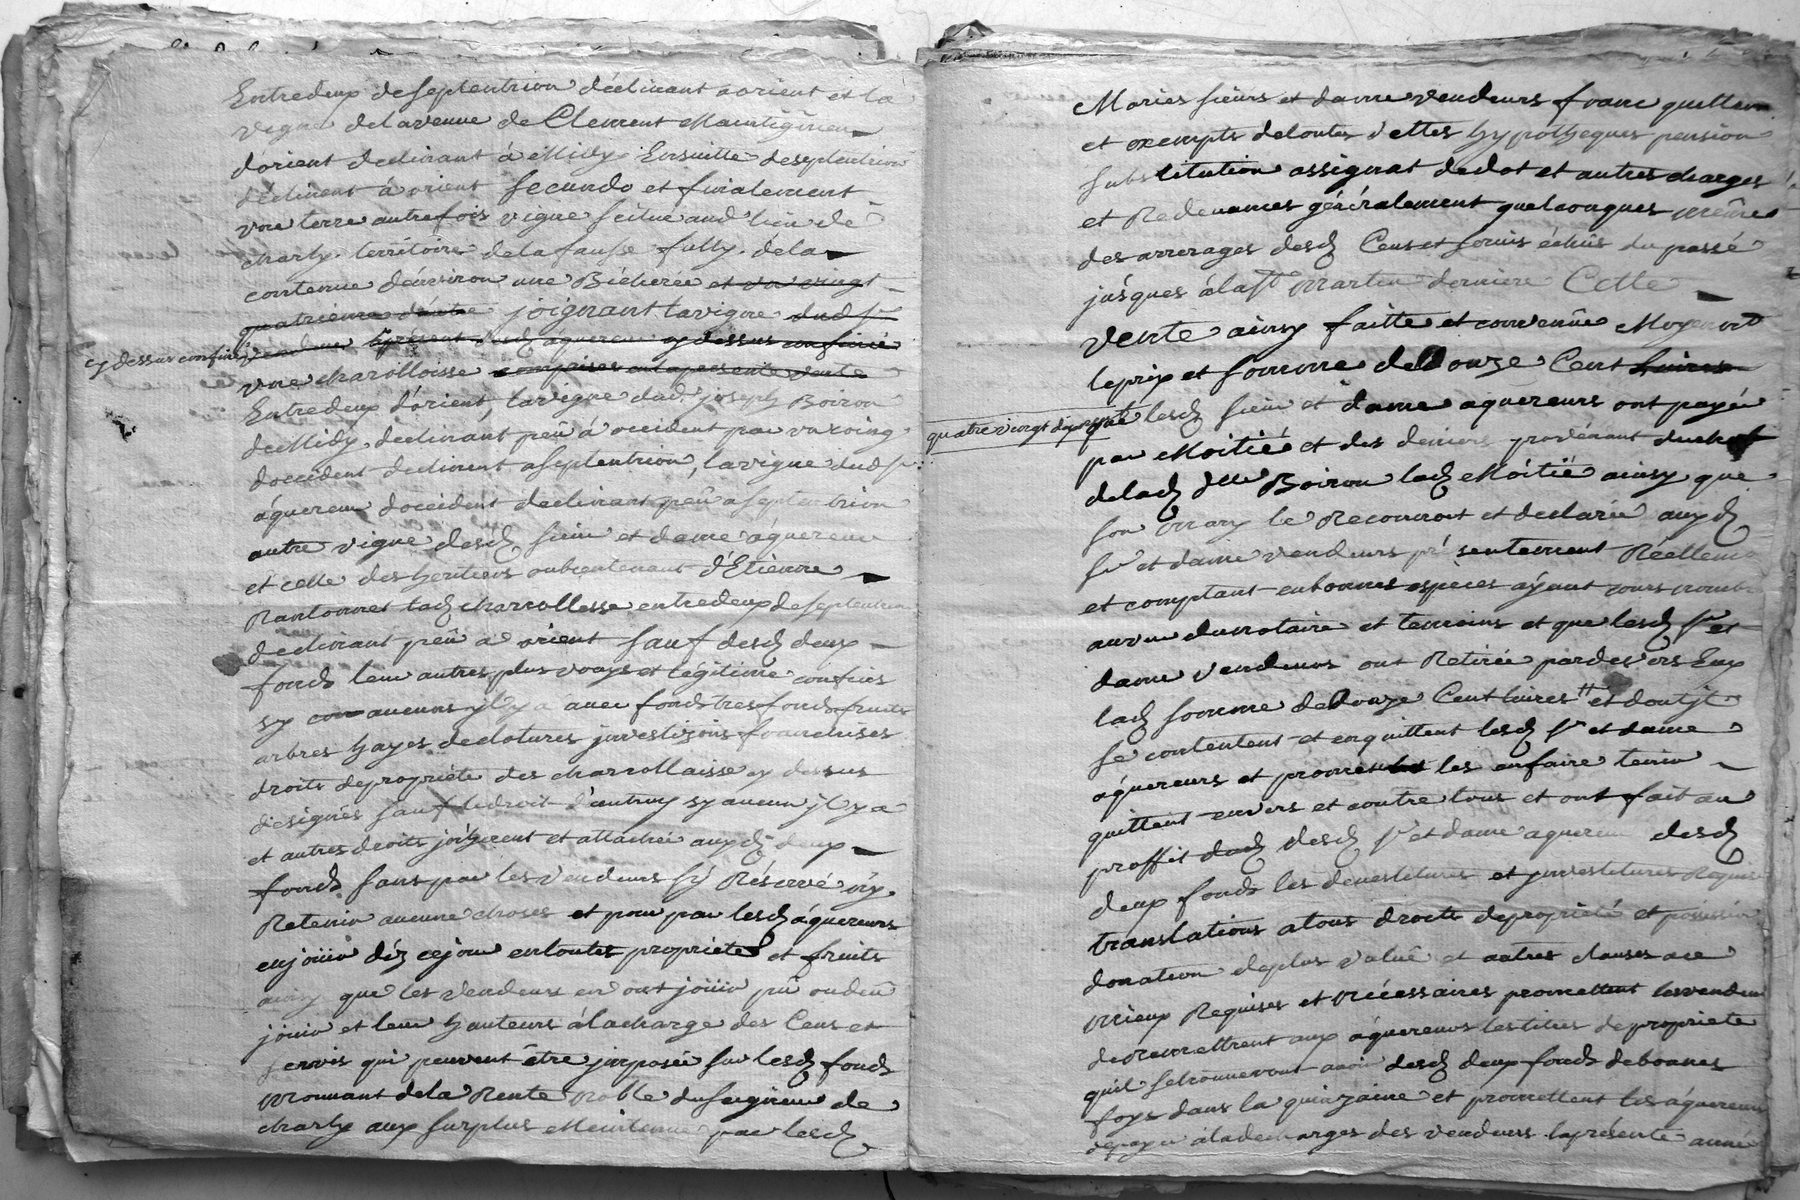 Entredeux de septentrion déclinant a orient et la
vigne de la veuve de Clement
d'orient declinant à Midy Ensuitte de septentrion
déclinent à orient secundo et finalement
une terre autrefois vigne scitue aud lieu de
charly territoire de la fausse fully de la
contenue d'environ une Bicherée et un vingt
quatrieme d'autre joignant la vigne dud sr
cy dessus confiné
à présent desd áquereur cy dessus confiné
une charolloisse comprises en la presente vente
Entredeux d'orient, la vigne dud. joseph Boiron
de Midy declinant peû á occident par un coing
doccident declinent a septentrion, la vigne dud sr
áquereur doccident declinant peû a septentrion
autre vigne desd sieur et dame áquereur
et celle des heritiers ou bientenant d'Etienne
lad charrollesse entredeux de septentrion
declinant peû a orient sauf desd deux
fonds leur autres plus vrays et légitime confins
sy aucuns y il y a avec fonds tresfonds fruits
arbres hayes de clotures jnvestisons franchises
droits de propriété des charrollaisse cy dessus
désignés sauf le droit d'autruy sy aucun jl y a
et autres droits joignent et attachée auxd deux
fonds sans par les vendeurs sy Réservé ny
Retenir aucune choses et pour par lesd áquereurs
en joüir déz ce jour en toutes propriétes et fruits
ainsy que les vendeurs en ont joüir pû ou deû
joüir et leur hauteurs á la charge des Cens et
servis qui peuvent être jmposée sur lesd fonds
mouvant de la Rente Noble du seigneur de
charly aux surplus Meintenue par lesd
Maries sieurs et dame vendeurs franc quittes
et exempts de toutes dettes hypotheques pension
substitution assignat de dot et autres charges
et Redevances généralement quelconques même
des arrerages desd Cens et servis échûs du passé
jusques á la st Martin derniere Celle
vente ainsy faitte et convenûe Moyenant
le prix et somme de Douze Cent livres
quatre vingt dix sept
que lesd sieur et dame aquereurs ont payé
par Moitié et des deniers provénant du chef
de lad dlle Boiron lad Moitié ainsy que
son mary le Reconnoit et declarée auxd
sr et dame vendeurs présentement Réellement
et comptant en bonnes especes ayant cours
au vu du notaire et temoins et que lesd sr et
dame vendeurs ont Retirée pardevers Eux
lad somme de Douze Cent livres et dont jls
se contentent et enquittent lesd sr et dame
áquereurs et promettent les en faire tenir
quittent envers et contre tous et ont fait au
proffit desd sr et dame aquereur desd
deux fonds les devestitures et jnvestitures Requise
translations a tous droits de propriété et possession
donation de plus valüe et autres clauses a ce
mieux Requises et Nécessaires promettent les vendeurs
de Remettrent aux áquereurs les titres de propriete
quil se trouveront avoir desd deux fonds de bonnes
foys dans la quinzaine et promettent les áquereurs
de payer a la decharges des vendeurs la présente année